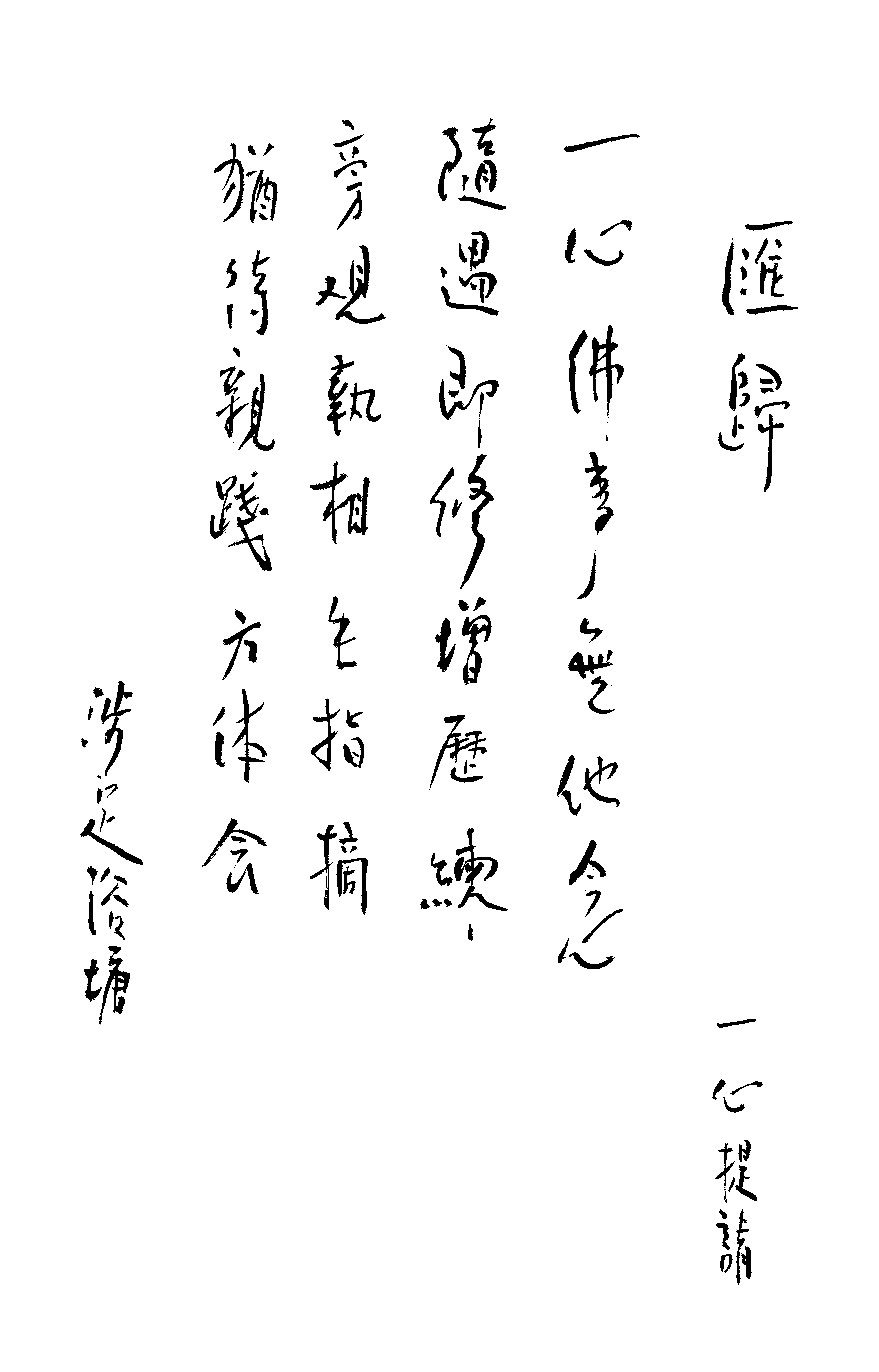 匯歸 一心提請
一心佛事無他念
隨遇即修增歷練
旁观執相乞指摘
猶待親踐方体会
涉足浴塘